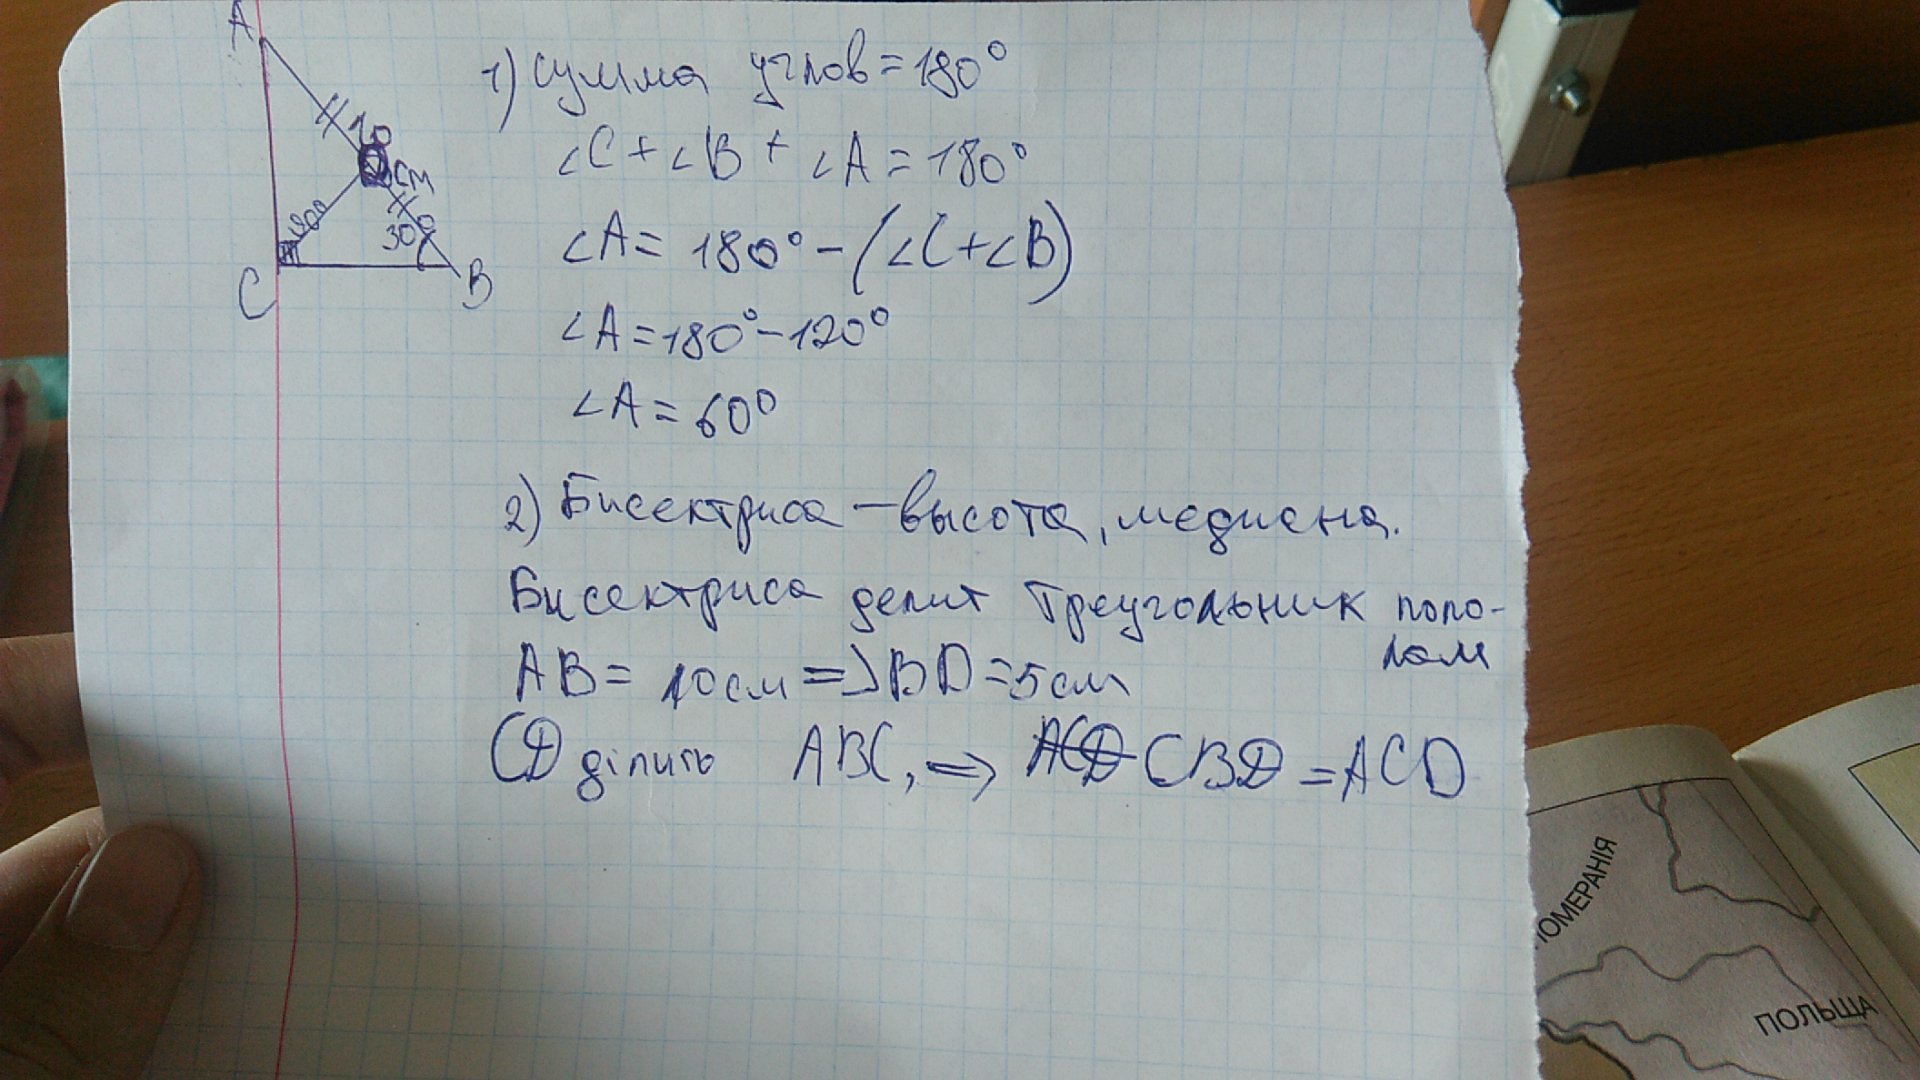 A
10
см
90°
30°
C
B
1) Сумма углов = 180°
∠C + ∠B + ∠A = 180°
∠A = 180° - (∠C + ∠B)
∠A = 180° - 120°
∠A = 60°
2) Бисектриса - высота, медиана.
Бисектриса делит треугольник попо-
лам
AB = 10 см => BD = 5 см
CD ділить ABC, => CBD = ACD
ПОМЕРАНІЯ
ПОЛЬЩА